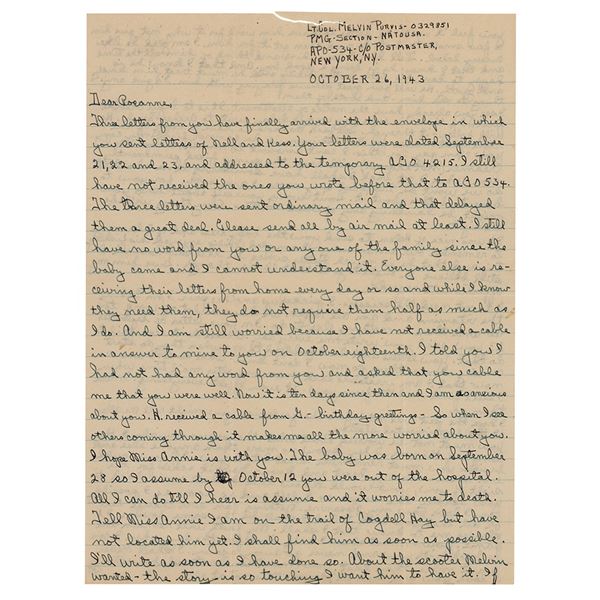 LT. COL. MELVIN PURVIS - 0329851
PMG - SECTION - NATOUSA.
APO - 534 - C/O POSTMASTER,
NEW YORK, N.Y.
OCTOBER 26, 1943
Dear Roseanne,
Three letters from you have finally arrived with the envelope in which
you sent letters of Nell and Hess. Your letters were dated September
21, 22 and 23, and addressed to the temporary APO 4215. I still
have not received the ones you wrote before that to APO 534.
The three letters were sent ordinary mail and that delayed
them a great deal. Please send all by air mail at least. I still
have no word from you or any one of the family since the
baby came and I cannot understand it. Everyone else is re-
ceiving their letters from home every day or so and while I know
they need them, they do not require them half as much as
I do. And I am still worried because I have not received a cable
in answer to mine to you on October eighteenth. I told you I
had not had any word from you and asked that you cable
me that you were well. Now it is ten days since then and I am as anxious
about you. H. received a cable from G. - birthday greetings - So when I see
others coming through it makes me all the more worried about you.
I hope Miss Annie is with you. The baby was born on September
28 so I assume by October 12 you were out of the hospital.
All I can do till I hear is assume and it worries me to death.
Tell Miss Annie I am on the trail of Cogdell Hay but have
not located him yet. I shall find him as soon as possible.
I'll write as soon as I have done so. About the scooter Melvin
wanted - the story is so touching I want him to have it. If